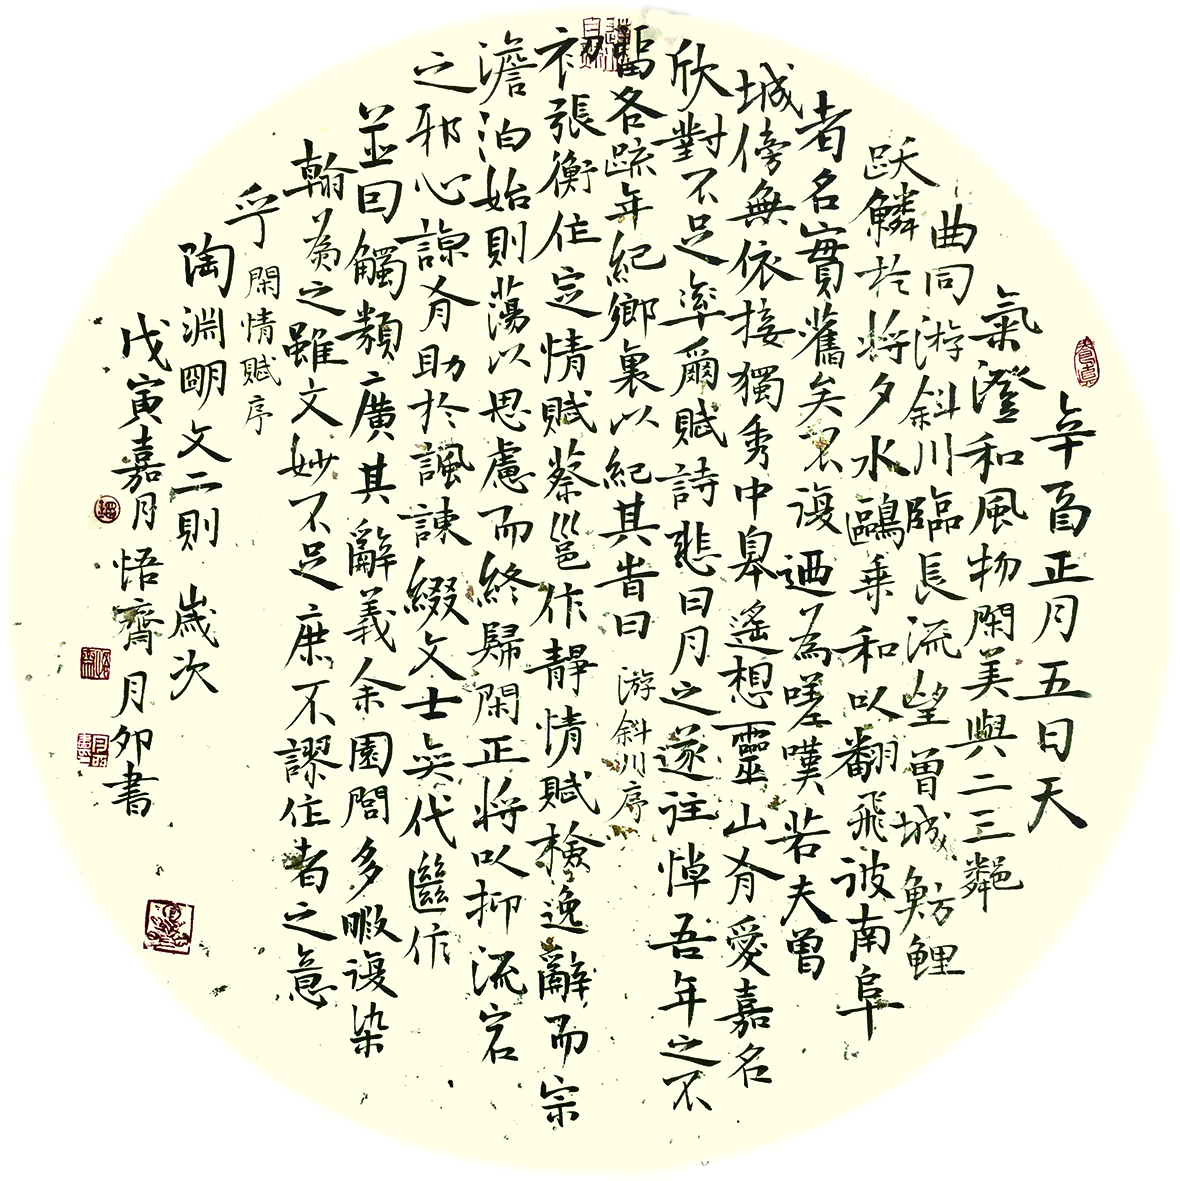 辛酉正月五日天
氣澄和風物閑美與二三鄰
曲同游斜川臨長流望曾城魴鯉
躍鱗於將夕水鷗乗和以翻飛彼南阜
者名實舊矣不復迺為嗟嘆若夫曾
城傍無依接獨秀中皋遙想靈山有愛嘉名
欣對不足率爾賦詩悲日月之遂往悼吾年之不
留各疏年紀鄉裏以紀其旹日 游斜川序
初張衡作定情賦蔡邕作靜情賦檢逸辭而宗
澹泊始則蕩以思慮而終歸閑正將以抑流宕
之邪心諒有助於諷諫綴文士奕代繼作
並因觸類廣其辭義余園閭多暇復染
翰為之雖文妙不足庶不謬作者之意
乎 閑情賦序
陶淵明文二則 歲次
戊寅嘉月悟齋月卯書